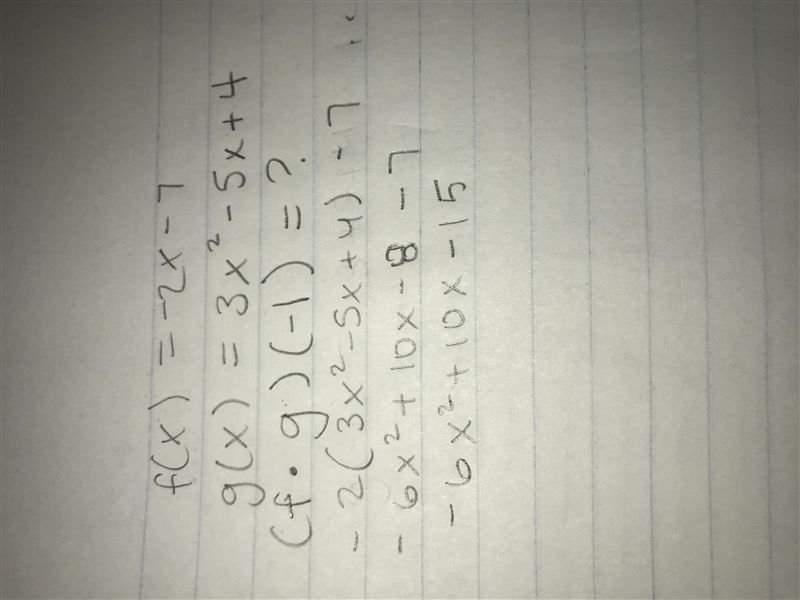 f(x) = -2x - 7
g(x) = 3x² - 5x + 4
(f • g)(-1) = ?
- 2(3x² - 5x + 4) - 7
- 6x² + 10x - 8 - 7
- 6x² + 10x - 15